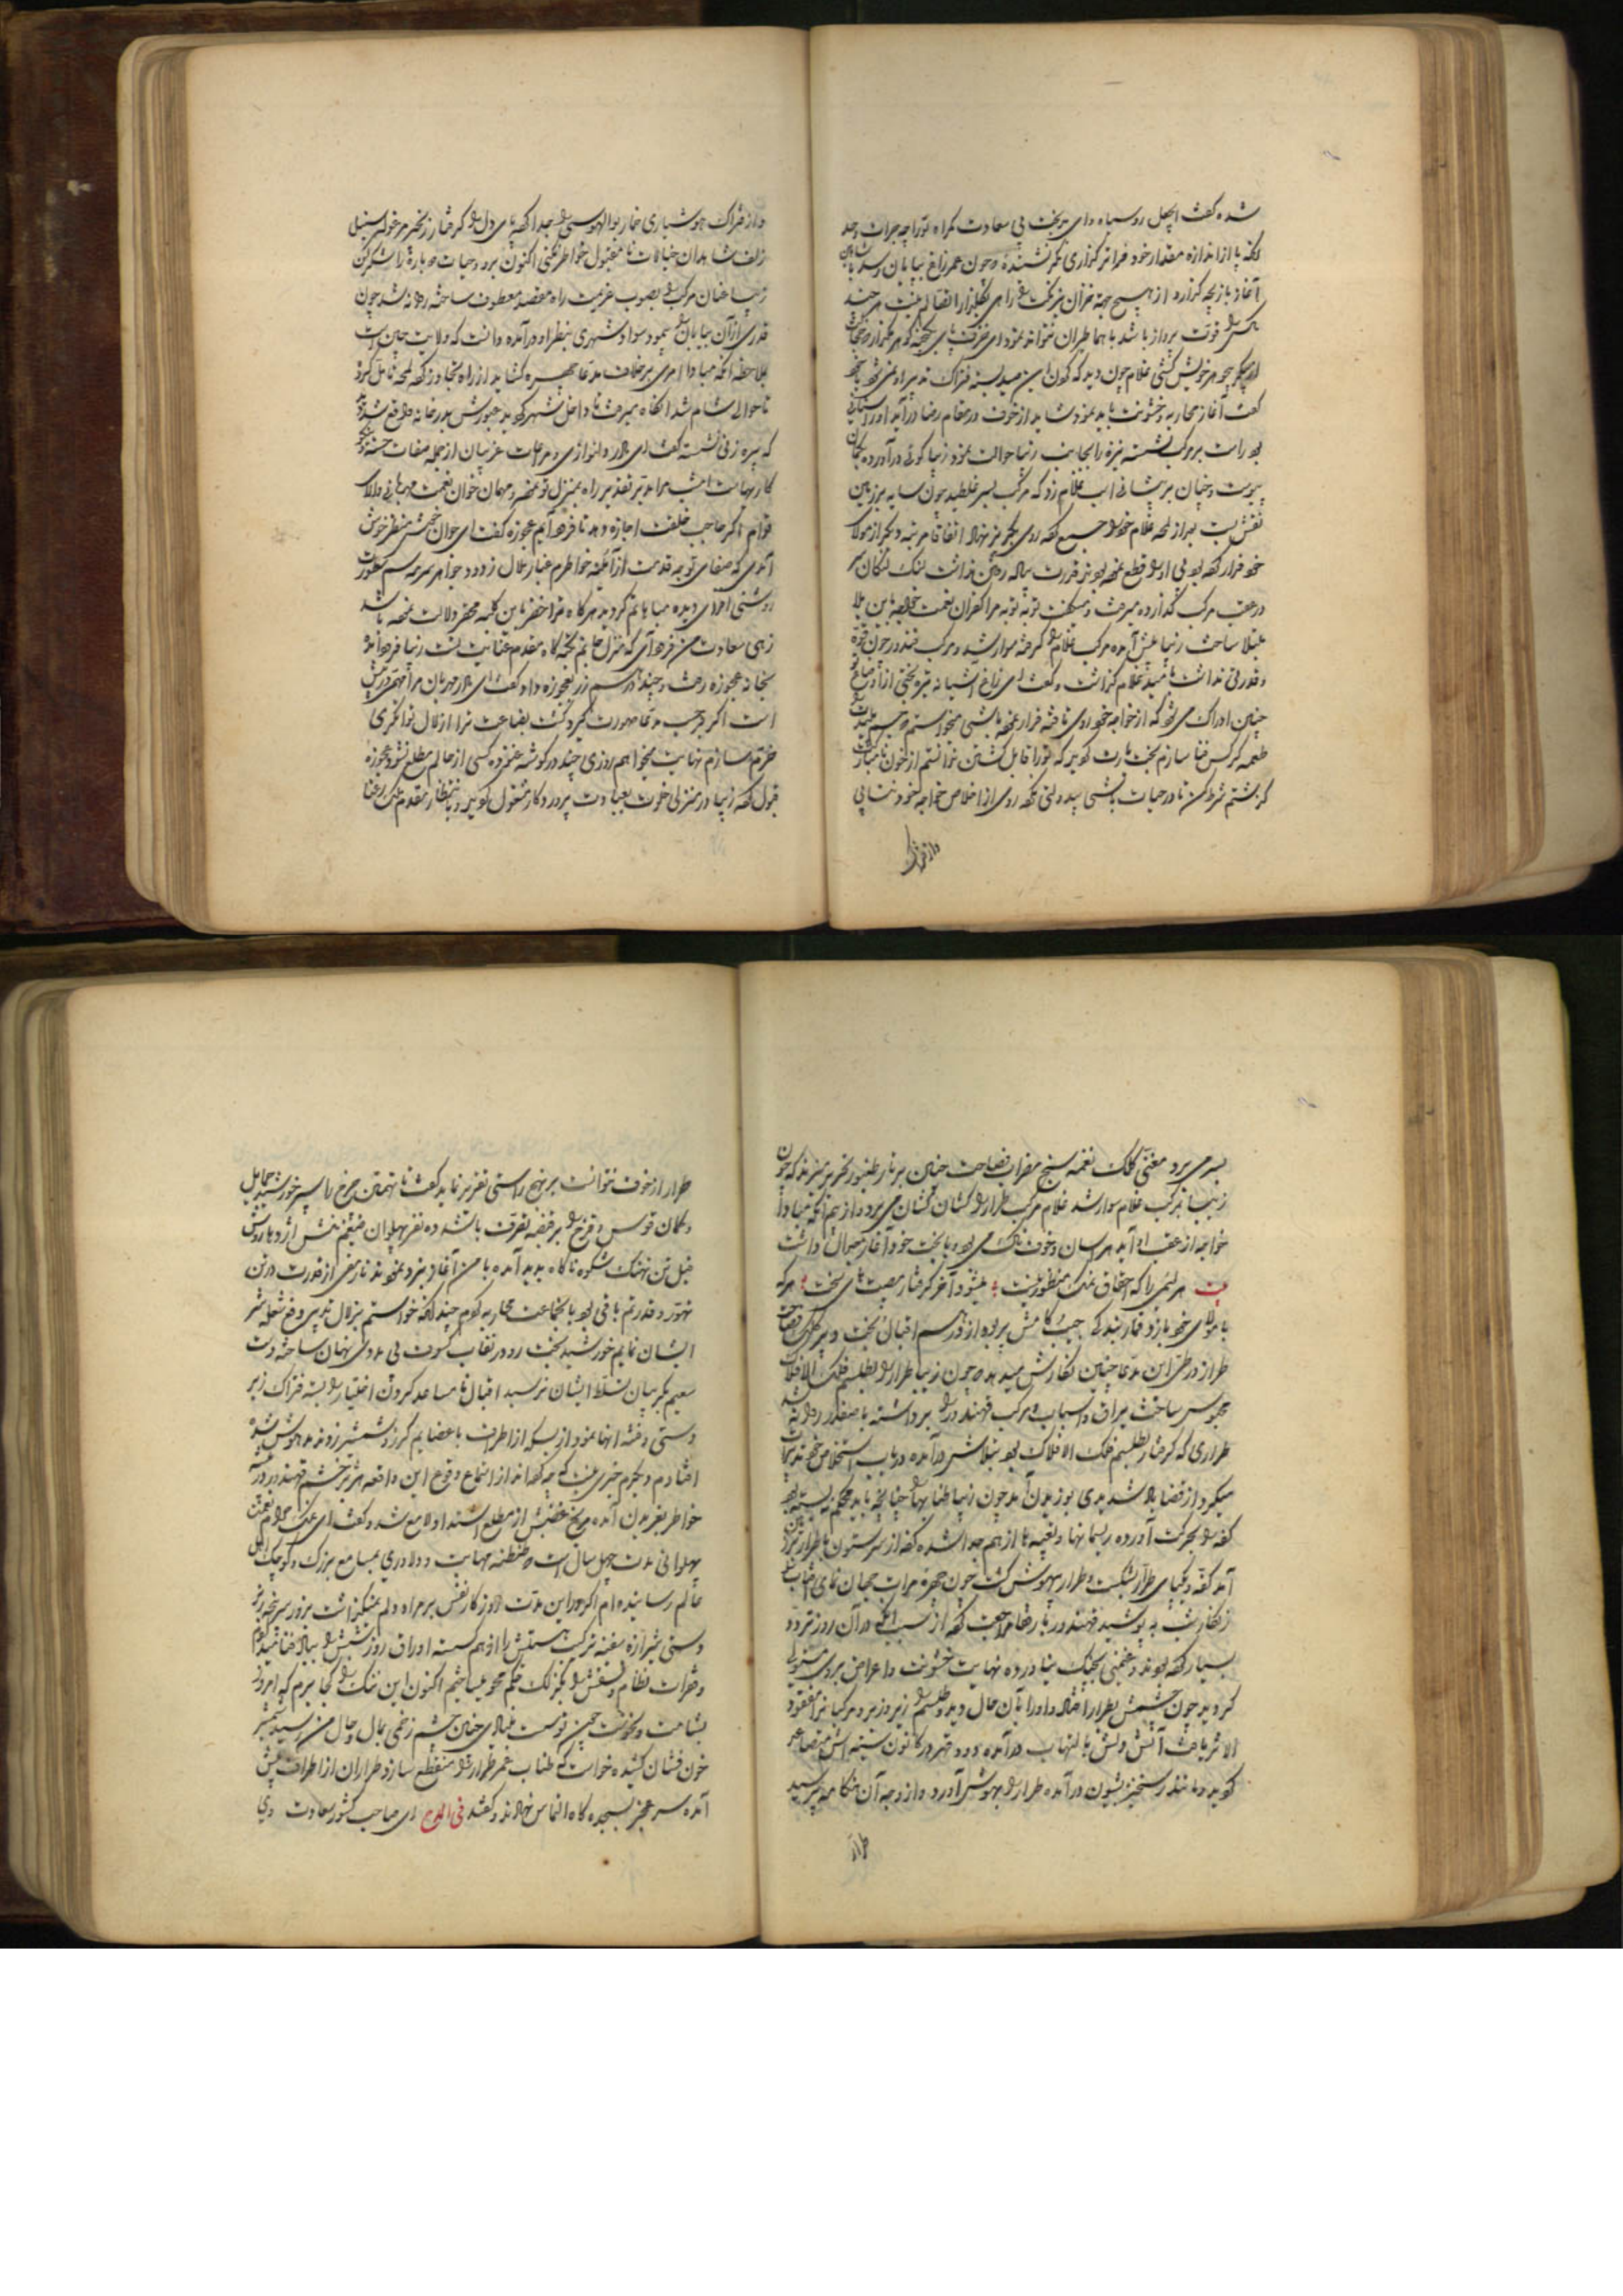 شده گفت ای چهل روسیاه و ای بدبخت بی سعادت گمراه تو را چه جرات و حد
آنکه پا از اندازه مقدار خود فراتر گذاری مگر نشنیده چون عمر زاغ بپایان رسد با شاهین
آغاز بازیچه گذارد از هیچ جهة خزان نیز بختت را راهی بگلزار اقبال نیست هر چند
مکس را قوت پرواز باشد با هما طیران نتواند نمود
کفت آغاز محاربه و خشونت باید نمود شاید از خوف در مقام رضا درآید
بود راست بر مرکب نشسته نیزه را بجانب زیبا حوالت نمود زیبا کوئی درآورده
پیوست و چنان بر پیشانی اسب غلام زد که مرکب بسر غلطید چون سایه بر زمین
نقش بست بعد از لمحه غلام خود را جمع کرده روی بگریز نهاد اتفاقا مرتبه دیگر از مولای
خود فرار کرده بود پی او را قطع نموده بودند قدرت پیاده رفتن نداشت لنگ لنگان
در عقب مرکب گذارده میرفت و میگفت توبه توبه مرا کفران نعمت خواجه باین بلا
مبتلا ساخت زیبا پیش آمده مرکب غلام را گرفته سوار شد و مرکب قهندر چون
و قدرتی نداشت غلام گذاشت و گفت ای زاغ آشیانه تیره بختی
چنین ادراک می شود که از خواجه خود روی تافته فرار نموده باشی میخواستم
طعمه کرکس فنا سازم بختت یارت گردید که تو را قابل کشتن ندانستم از خون
گذشتم شرط کن تا در حیات باشی بیدولتی نکرده روی از اخلاص خواجه خود نتابی
و از فتراک
و از فتراک هوشیاری خمار بوالهوسی را جدا کرده پای دل را گرفتار زنجیر مرغول سنبل
زلف شاهدان خیالات نامقبول خواطر نکنی اکنون برو و حیات دوباره را شکر کن
زیبا عنان مرکب را بصوب عزیمت راه مقصد معطوف ساخته روانه شد چون
قدری از آن بیابان را پیمود سواد شهری بنظر او درآمده دانست که ولایت چین است
بملاحظه آنکه مبادا امری برخلاف مدعا چهره گشاید از راه تجاوز کرده لمحه تامل کرد
تا حوالی شام شد آنگاه میرفت تا داخل شهر گردید عبورش بدر خانه واقع شد
که پیره زنی نشسته گفت ای مادر دلنوازی و مراعات غریبان از جمله صفات حسنه
کار نهایت امشب مرا بد تیر تقدیر راه بمنزل تو نموده مهمان خوان نعمت مهربانی
توام اگر صاحب خلقت اجازه دهد تا فرود آیم عجوزه گفت ای جوان خوش منظر خوش
آمدی که صفای توجه قدمت از آئینه خواطرم غبار ملال زدود
روشنی افزای دیده مباهاتم گردید هرگاه ترا خضر باین کلبه محقر دلالت نموده باشد
زهی سعادت من فرود آی که منزل جانم تختگاه مقدم عنایت تست زیبا فرود آمده
بخانه عجوزه رفت و چند درهم زر بعجوزه داد و گفت ای مادر مهربان مرا مهمی در پیش
است اگر بر حسب مدعا صورت گیرد کشت بضاعت ترا از زلال توانگری
خرم سازم نهایت میخواهم روزی چند در گوشه غنوده کسی از حالم مطلع نشود عجوزه
قبول کرده زیبا در منزلی خلوت بعبادت پروردگار مشغول گردید و بانتظار مقدم ملک رعنا
بسر می برد مغنی کلک نغمه سنج مضراب فصاحت چنین بر تار طنبور تحریر میزند که چون
زیبا بر مرکب غلام سوار شد غلام مرکب طرار را کشان کشان می برد و از بیم آنکه مبادا
خواجه از عقب او آید هراسان و خوفناک می بود و با بخت خود آغاز جدال داشت
بیت هر لئیمی را که احقاق نمک منظور نیست میشود آخر گرفتار مصیبتهای سخت هر که
با مولای خود بازد قمار بندگی جیب کامش پر بود از درهم اقبال بخت دبیر کلک فصاحت
طراز در طی این مدعا چنین نگارش میدهد چون زیبا طرار را بطلسم فلک الافلاک
محبوس ساخت یراق و اسباب و مرکب قهندر را برداشته با صفدر روانه شد
طراری که گرفتار طلسم فلک الافلاک بود بتلاش درآمده در باب استخلاص خود تدبیرات
میکرد از قضا باد شدیدی بوزیدن آمد چون زیبا طنابها چنانچه باید محکم نبسته بود
کفه را بحرکت آورده ریسمانها و تعبیه ها از هم جدا شده کفه از سر ستون با طرار بزیر
آمد کفه و یکپای طرار شکست و طرار بیهوش گشت چون چهره مرات جهان نمای آفتاب
زنگار شب به پوشید قهندر با رفقا مراجعت کرده از سبب آنکه در آن روز تردد
بسیار کرده بودند و غنیمتی بچنگ نیاورده نهایت خشونت و اعراض بر وی مستولی
گردید چون چشمش بطرار افتاد و او را بآن حال دید و طلسم را زیر و زبر و مرکبانرا مفقود
الاثر یافت آتش دلش بالتهاب درآمده دود قهر در کانون سینه اش متصاعد
گردید و مانند رستخیز بشیون درآمده طرار را بهوش آورد و از وجه آن هنگامه پرسید
طرار
طرار از خوف نتوانست بر نهج راستی تقریر نماید گفت تا تهمتن چرخ با سپر خورشید حمایل
و کمان قوس و قزح را بر قبضه تصرفت باشد ده نفر پهلوان ضیغم منش اژدها روش
فیل تن نهنگ شکوه ناگاه پدید آمده با من آغاز نبرد نمودند تا رمقی از قدرت در تن
تهور و قدرتم باقی بود با آنجماعت محاربه کردم چندانکه خواستم بزلال تدبیر دفع شعله شر
ایشان نمایم خورشید بخت رو در نقاب کسوف بی مددی نهان ساخته دست
سعیم بگریبان تسلط ایشان نرسید اقبال نامساعد گردون اختیار را بسته فتراک زبر
دستی و فتنه آنها نمود از بسکه از اطراف باعضایم گرز و شمشیر زدند مدهوش شده
افتادم و دیگرم خبری نیست که چه کرده اند از استماع وقوع این واقعه هژبر خشم قهندر در بیشه
خواطر بغریدن آمده مریخ غضبش از مطلع استبداد لامع شد و گفت ای نمک حرام
پهلوانی مدت چهل سال است طنطنه مهابت و دلاوری بمسامع بزرگ و کوچک اهل
عالم رسانیده ام اگر در این مدت روزگار نقش بر مراد دلم نمیگذاشت بزور سرپنجه زبر
دستی شیرازه سفینه ترکیب هستیش را از هم گسسته اوراق روز شبش را بباد فنا میدادم
و فقرات نظام و نسقش را بگزلک ظلم محو میساختم اکنون این ننگ را کجا برم که امروز
بشامت و نحوست چون تو سست بنیادی چنین چشم زخمی بمال و حال من رسید شمشیر
خون فشان کشیده خواست که طناب عمر طرار را منقطع سازد طراران از اطراف پیش
آمده سر عجز بسجده گاه التماس نهادند و گفتند فی المدح ای صاحب کشور سعادت وی